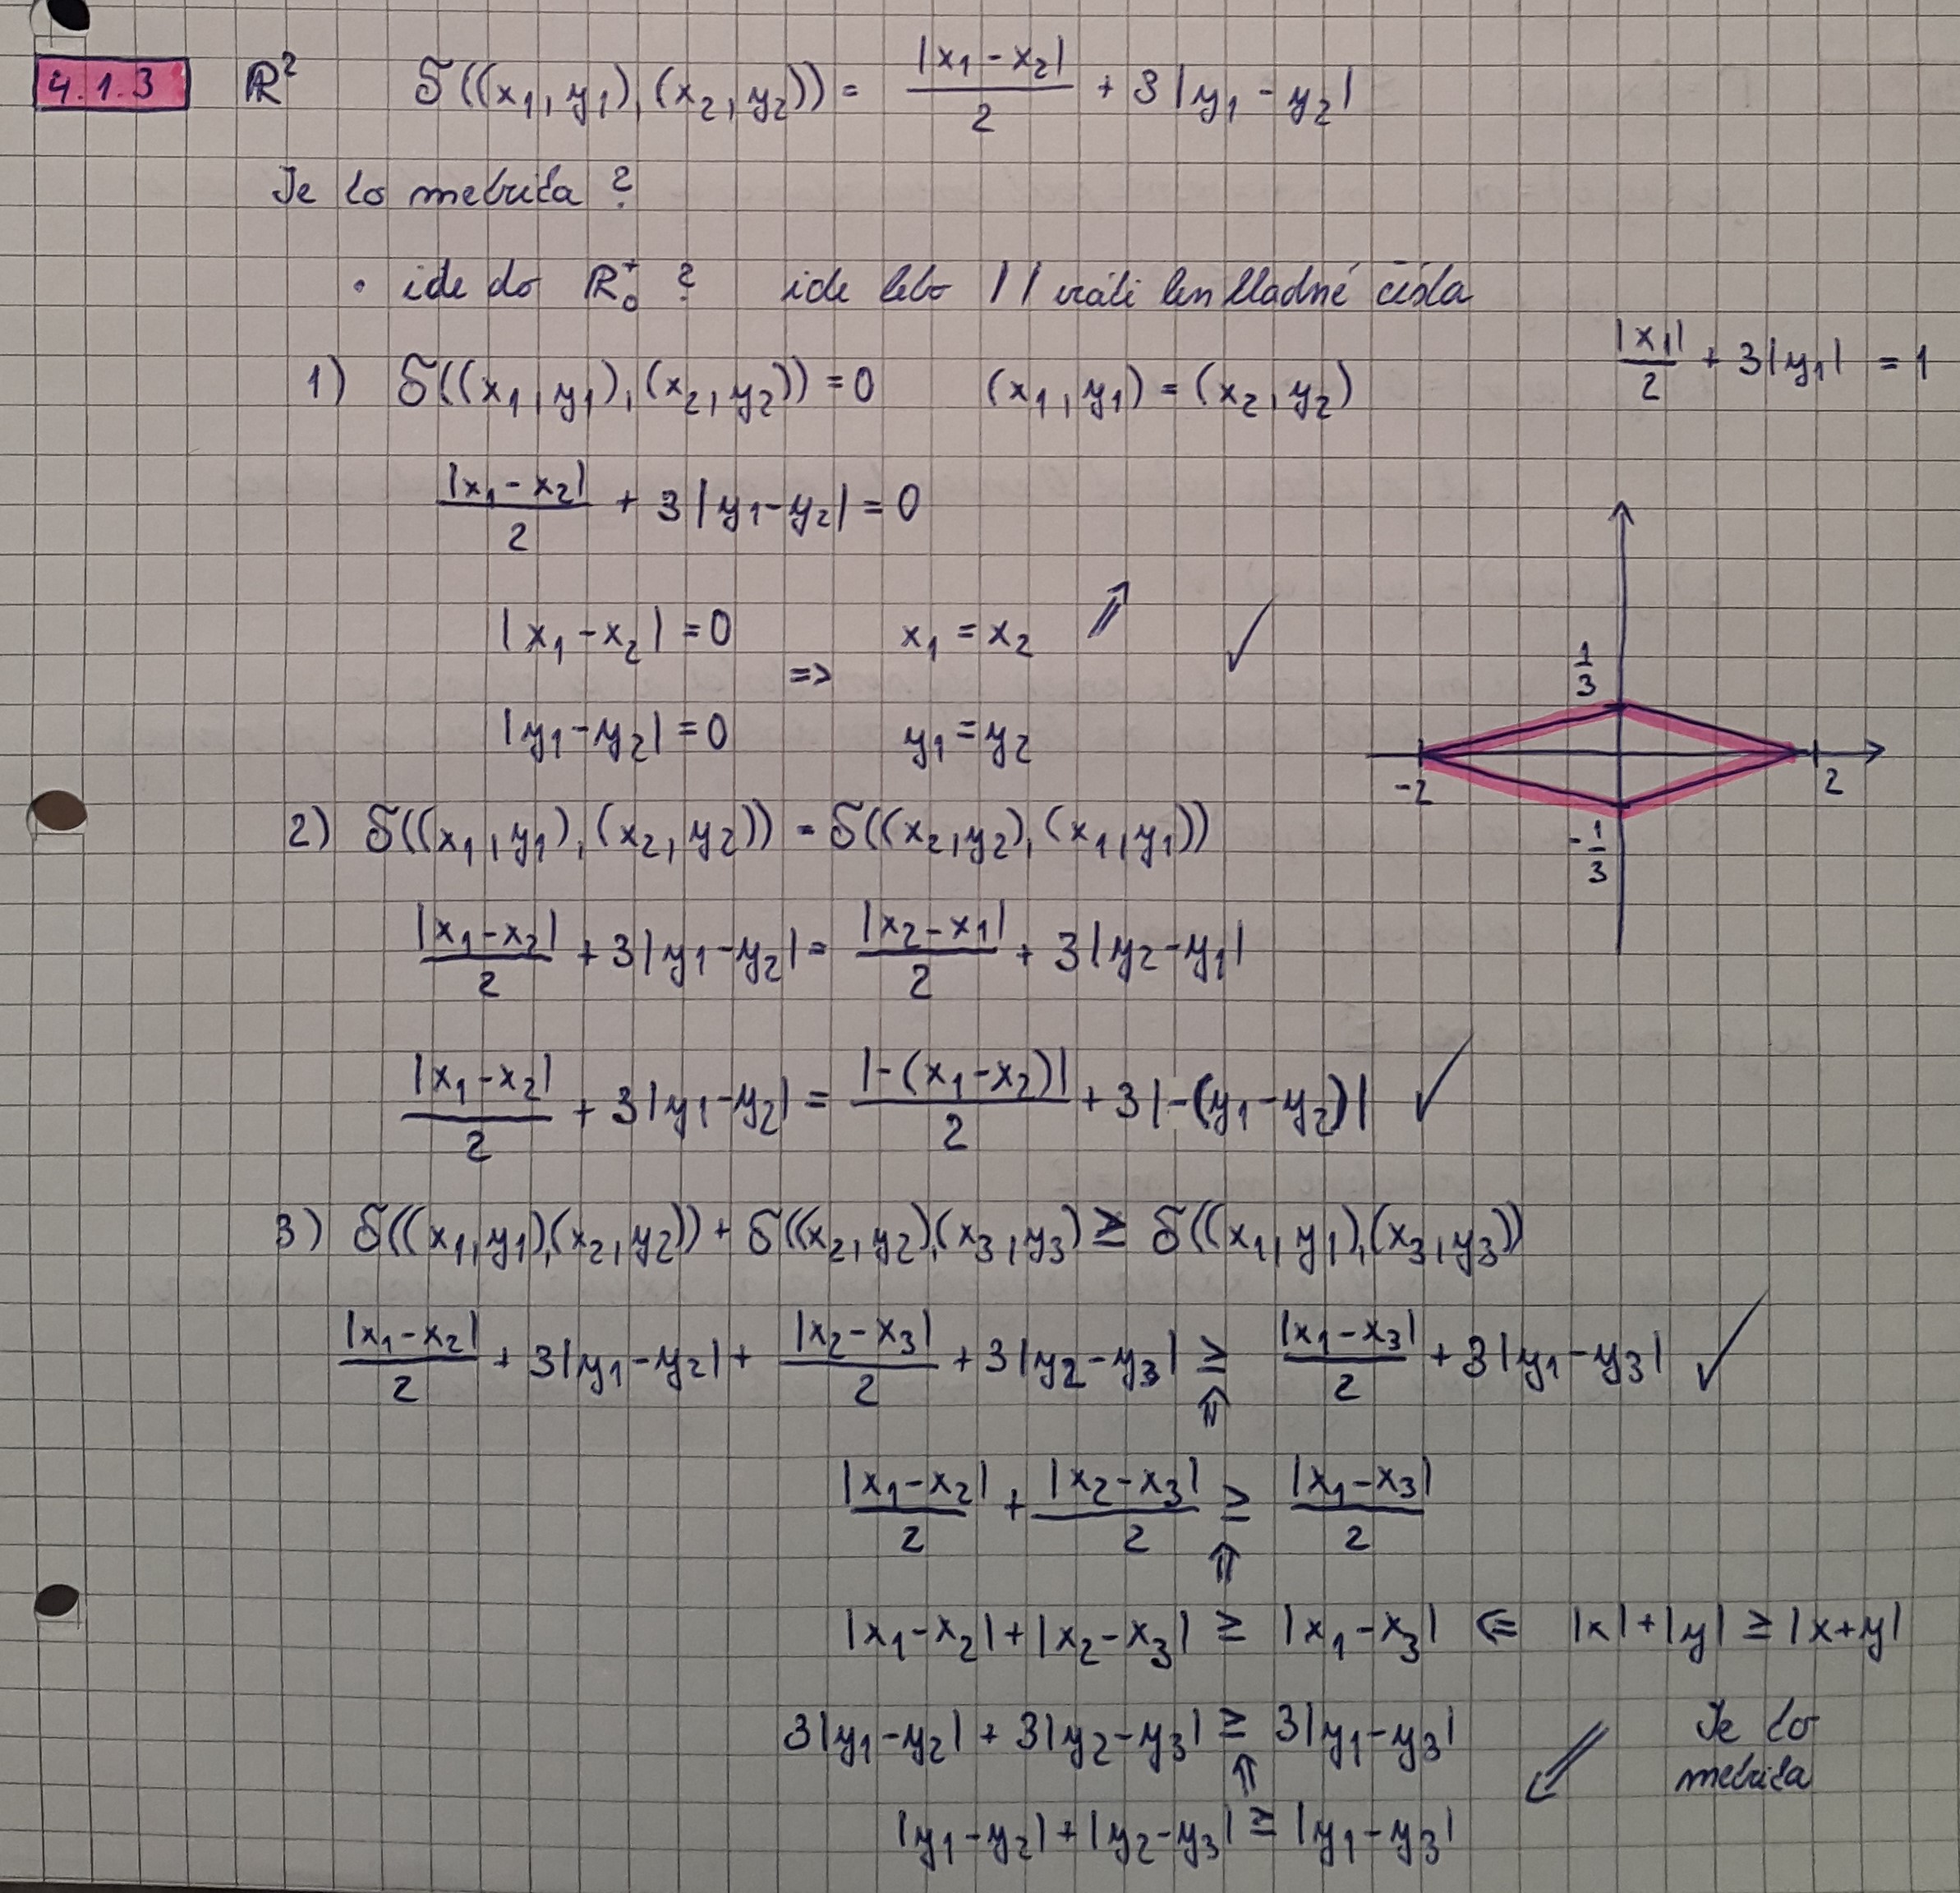 4.1.3 ℝ² δ((x₁, y₁), (x₂, y₂)) = |x₁ - x₂|/2 + 3|y₁ - y₂|
Je to metrika ?
• ide do ℝ₀⁺ ? ide lebo | | vráti len kladné čísla
|x₁|/2 + 3|y₁| = 1
1) δ((x₁, y₁), (x₂, y₂)) = 0 (x₁, y₁) = (x₂, y₂)
|x₁ - x₂|/2 + 3|y₁ - y₂| = 0
|x₁ - x₂| = 0 x₁ = x₂ ⇗ ✓
⇒
|y₁ - y₂| = 0 y₁ = y₂
1/3
-2 2
-1/3
2) δ((x₁, y₁), (x₂, y₂)) = δ((x₂, y₂), (x₁, y₁))
|x₁ - x₂|/2 + 3|y₁ - y₂| = |x₂ - x₁|/2 + 3|y₂ - y₁|
|x₁ - x₂|/2 + 3|y₁ - y₂| = |-(x₁ - x₂)|/2 + 3|-(y₁ - y₂)| ✓
3) δ((x₁, y₁), (x₂, y₂)) + δ((x₂, y₂), (x₃, y₃) ≥ δ((x₁, y₁), (x₃, y₃))
|x₁ - x₂|/2 + 3|y₁ - y₂| + |x₂ - x₃|/2 + 3|y₂ - y₃| ≥ |x₁ - x₃|/2 + 3|y₁ - y₃| ✓
⇑
|x₁ - x₂|/2 + |x₂ - x₃|/2 ≥ |x₁ - x₃|/2
⇑
|x₁ - x₂| + |x₂ - x₃| ≥ |x₁ - x₃| ⇐ |x| + |y| ≥ |x + y|
3|y₁ - y₂| + 3|y₂ - y₃| ≥ 3|y₁ - y₃| ⇙ Je to
⇑ metrika
|y₁ - y₂| + |y₂ - y₃| ≥ |y₁ - y₃|